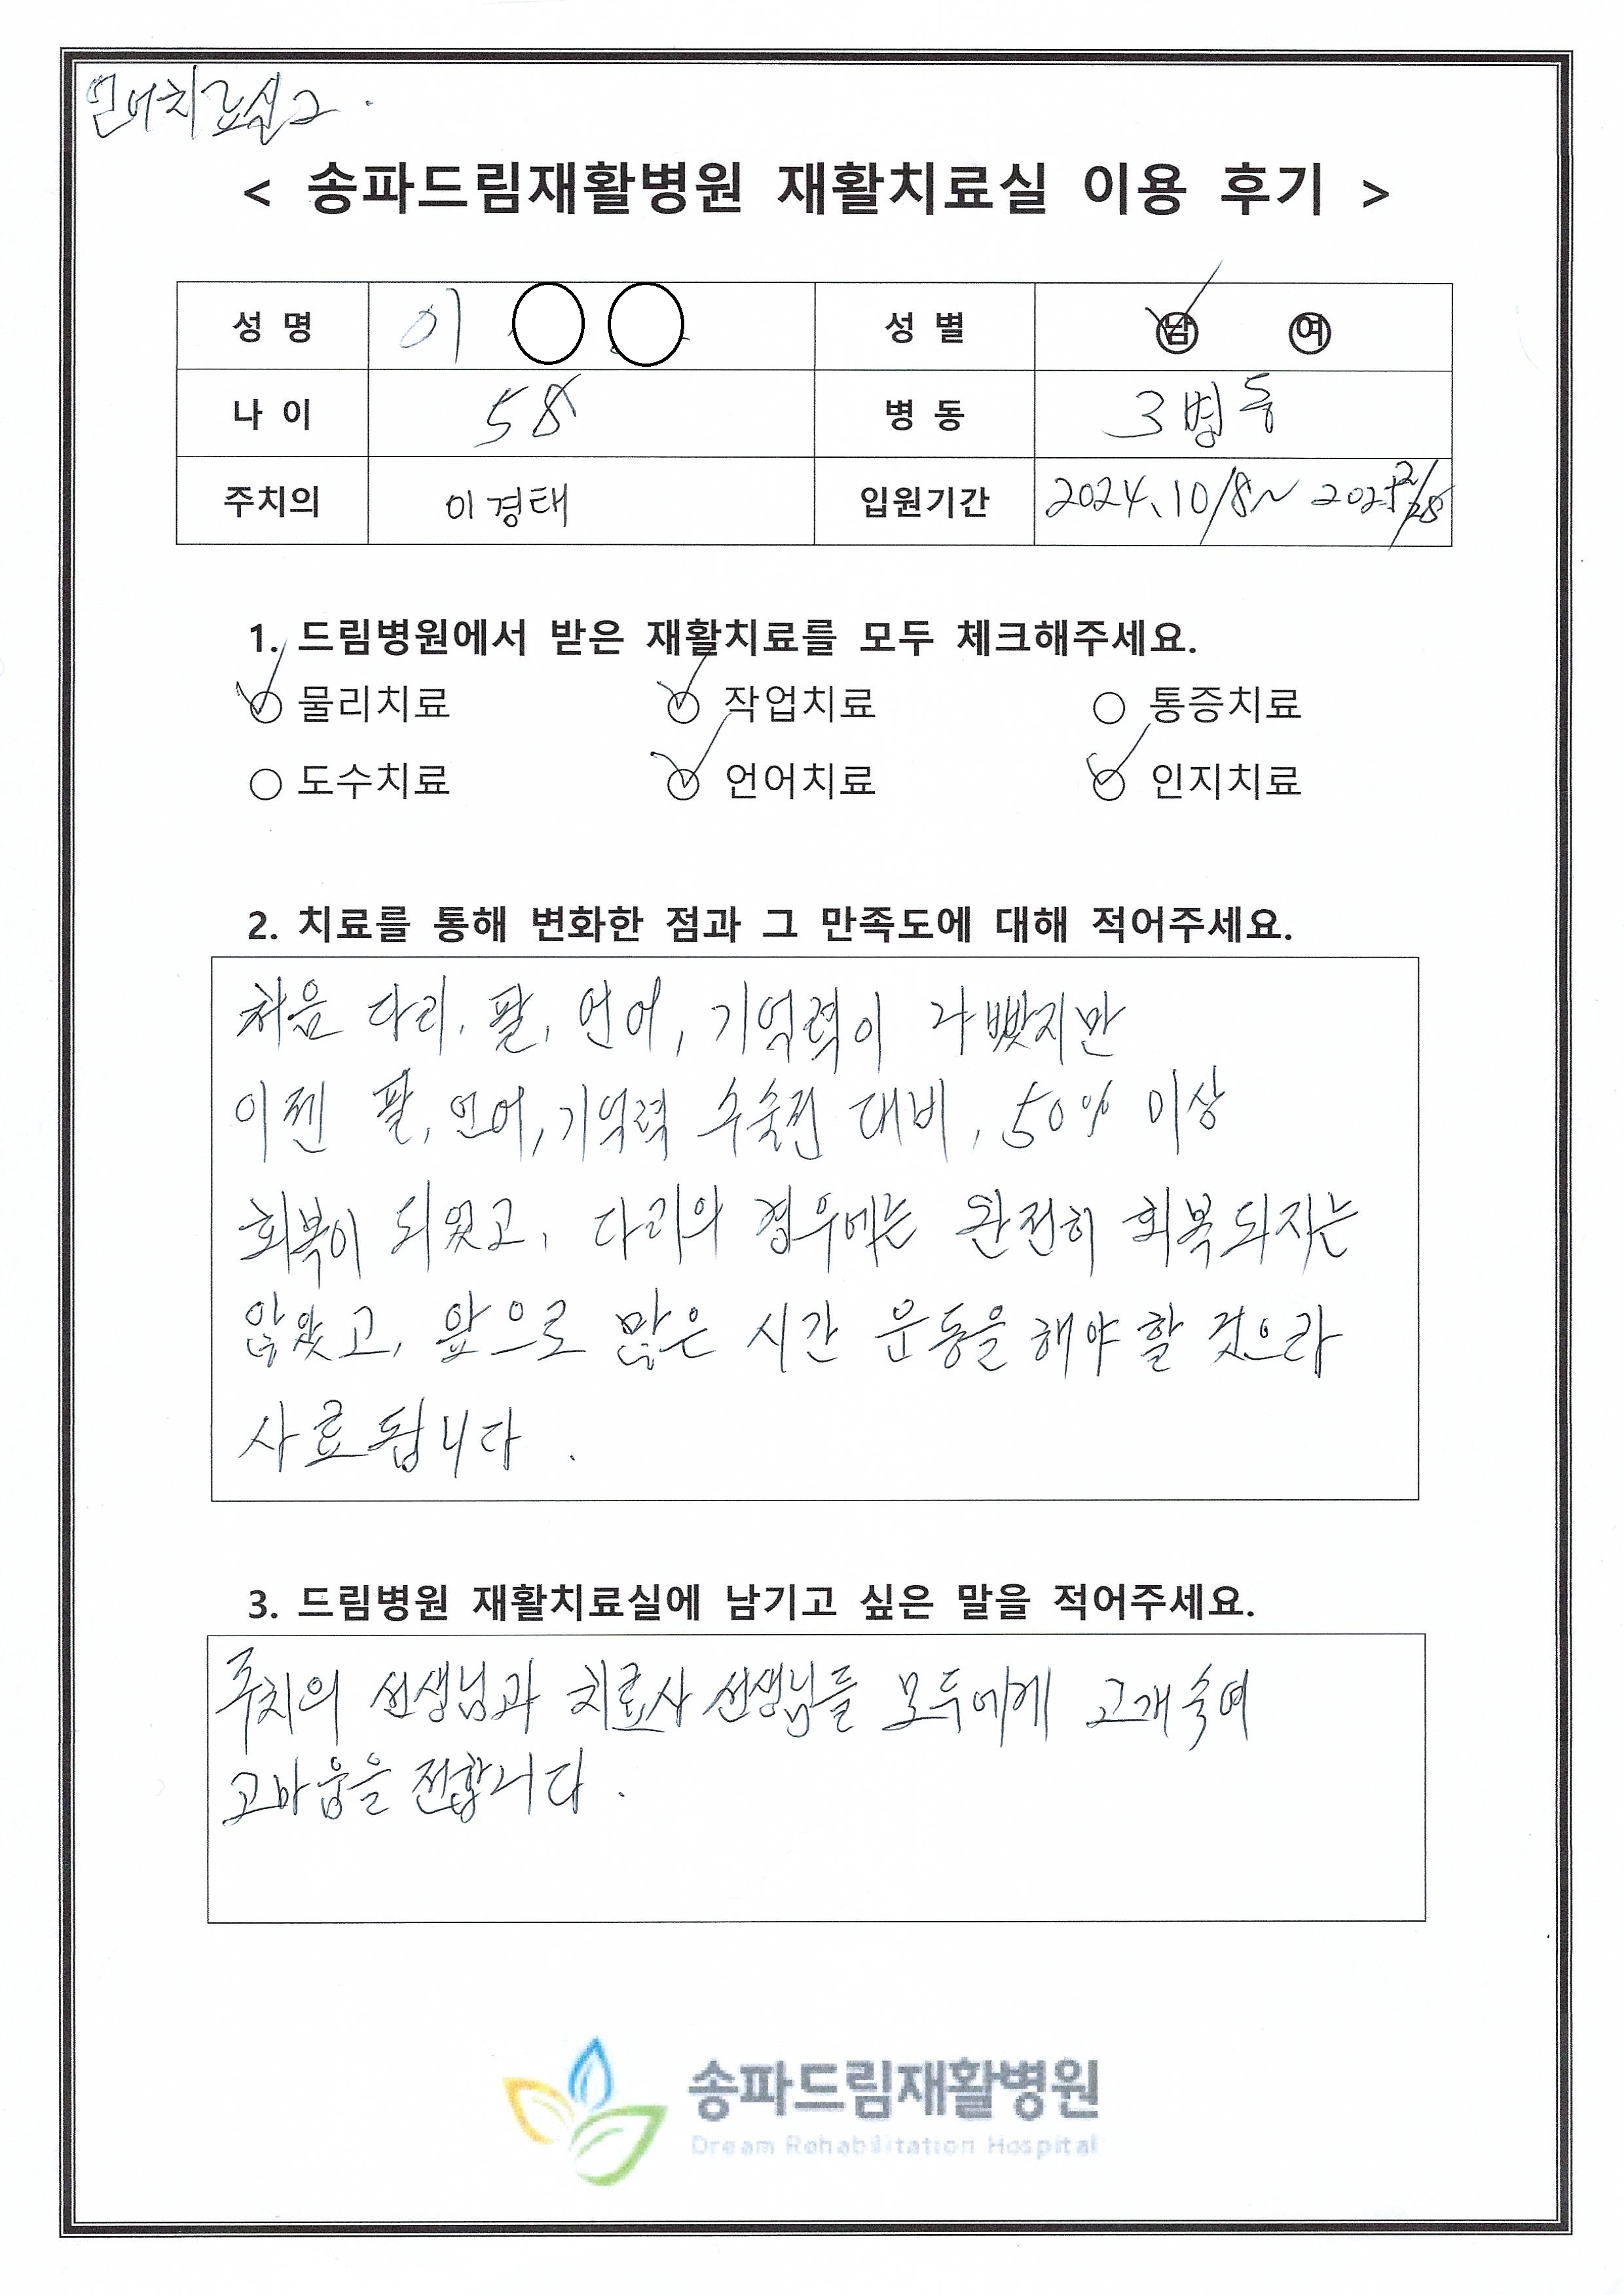 언어치료실2.
< 송파드림재활병원 재활치료실 이용 후기 >
성 명 이 ○ ○ 성 별 남 여
나 이 58 병 동 3병동
주치의 이경태 입원기간 2024. 10/8~ 2025 2/28
1. 드림병원에서 받은 재활치료를 모두 체크해주세요.
물리치료 작업치료 ○ 통증치료
○ 도수치료 언어치료 인지치료
2. 치료를 통해 변화한 점과 그 만족도에 대해 적어주세요.
처음 다리, 팔, 언어, 기억력이 나빴지만
이젠 팔, 언어, 기억력 수술전 대비, 50% 이상
회복이 되었고, 다리의 경우에는 완전히 회복되지는
않았고, 앞으로 많은 시간 운동을 해야 할 것으라
사료됩니다.
3. 드림병원 재활치료실에 남기고 싶은 말을 적어주세요.
주치의 선생님과 치료사 선생님들 모두에게 고개숙여
고마움을 전합니다.
송파드림재활병원
Dream Rehabilitation Hospital